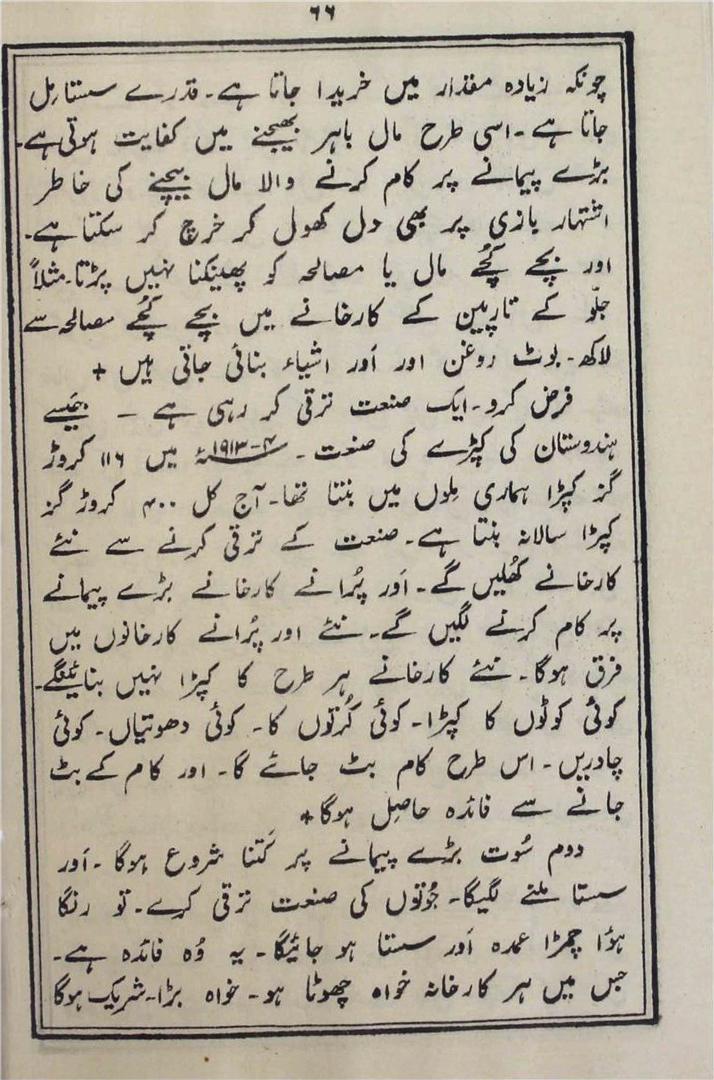 ۶۶
چونکہ زیادہ مقدار میں خریدا جاتا ہے۔ قدرے سستا مِل
جاتا ہے۔ اسی طرح مال باہر بھیجنے میں کفایت ہوتی ہے۔
بڑے پیمانے پر کام کرنے والا مال بیچنے کی خاطر
اشتہار بازی پر بھی دل کھول کر خرچ کر سکتا ہے۔
اور بچے کُچے مال یا مصالحہ کو پھینکنا نہیں پڑتا۔ مثلاً
جلّو کے تارپین کے کارخانے میں بچے کُچے مصالحہ سے
لاکھ۔ بوٹ روغن اور اَور اشیاء بنائی جاتی ہیں +
فرض کرو۔ ایک صنعت ترقی کر رہی ہے ۔ جیسے
ہندوستان کی کپڑے کی صنعت ۔ ۱۴-۱۹۱۳ء میں ۱۱۶ کروڑ
گز کپڑا ہماری مِلوں میں بنتا تھا۔ آج کل ۴۰۰ کروڑ گز
کپڑا سالانہ بنتا ہے۔ صنعت کے ترقی کرنے سے نئے
کارخانے کُھلیں گے۔ اَور پُرانے کارخانے بڑے پیمانے
پر کام کرنے لگیں گے۔ نئے اور پُرانے کارخانوں میں
فرق ہوگا۔ نئے کارخانے ہر طرح کا کپڑا نہیں بنائینگے۔
کوئی کوٹوں کا کپڑا۔ کوئی کُرتوں کا۔ کوئی دھوتیاں۔ کوئی
چادریں۔ اس طرح کام بٹ جائے گا۔ اور کام کے بٹ
جانے سے فائدہ حاصِل ہوگا +
دوم سُوت بڑے پیمانے پر کَتنا شروع ہوگا ۔ اَور
سستا ملنے لگیگا۔ جُوتوں کی صنعت ترقی کرے۔ تو رنگا
ہؤا چمڑا عمدہ اَور سستا ہو جائیگا۔ یہ وُہ فائدہ ہے۔
جس میں ہر کارخانہ خواہ چھوٹا ہو۔ خواہ بڑا۔ شریک ہوگا